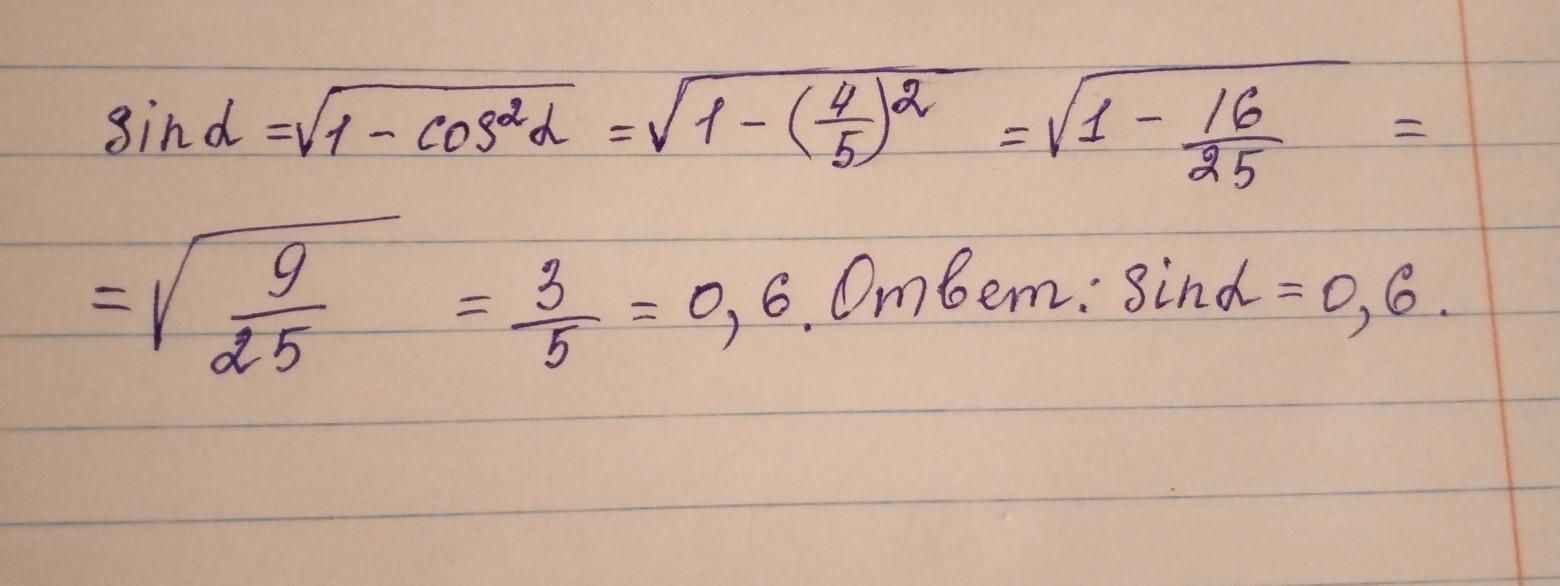 sin α = √1 - cos²α = √1 - (4/5)² = √1 - 16/25 =
= √9/25 = 3/5 = 0,6. Ответ: sin α = 0,6.